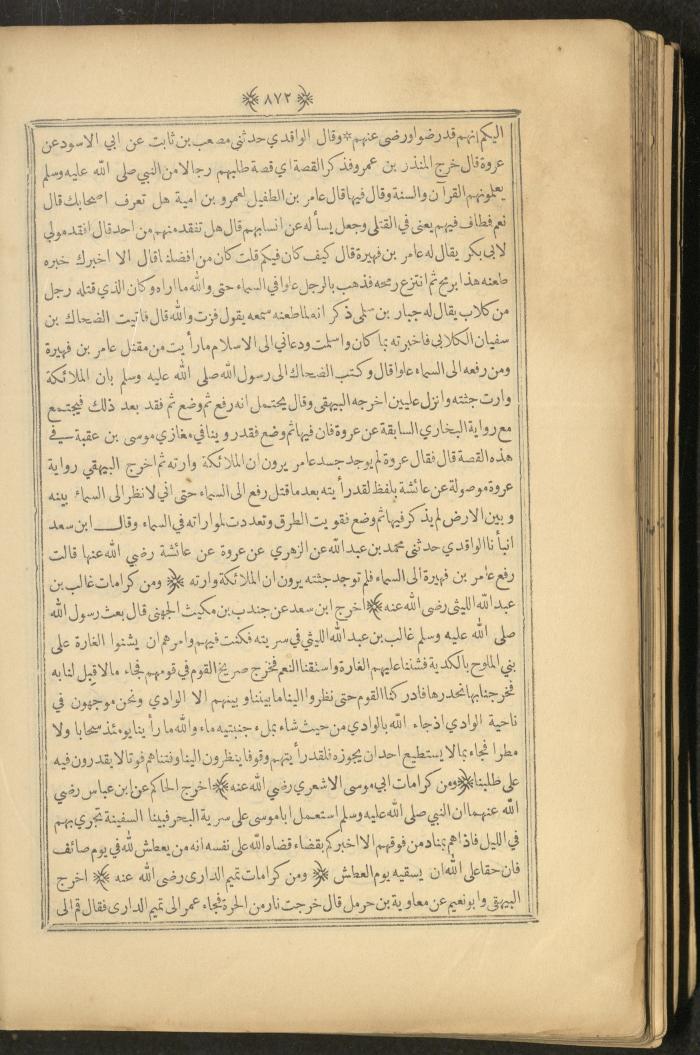 ﴿ ٨٧٢ ﴾
اليكم انهم قد رضوا ورضى عنهم * وقال الواقدي حدثنى مصعب بن ثابت عن ابي الاسود عن
عروة قال خرج المنذر بن عمرو فذكر القصة اي قصة طلبهم رجالا من النبي صلى الله عليه وسلم
يعلمونهم القرآن والسنة وقال فيها قال عامر بن الطفيل لعمرو بن امية هل تعرف اصحابك قال
نعم فطاف فيهم يعنى في القتلى وجعل يسأله عن انسابهم قال هل تفقد منهم من احد قال افقد مولي
لابى بكر يقال له عامر بن فهيرة قال كيف كان فيكم قلت كان من افضلنا قال الا اخبرك خبره
طعنه هذا برمح ثم انتزع رمحه فذهب بالرجل علوا في السماء حتى والله ما اراه وكان الذي قتله رجل
من كلاب يقال له جبار بن سلمى ذكر انه لما طعنه سمعه يقول فزت والله قال فاتيت الضحاك بن
سفيان الكلابي فاخبرته بما كان واسلمت ودعاني الى الاسلام ما رأيت من مقتل عامر بن فهيرة
ومن رفعه الى السماء علوا قال وكتب الضحاك الى رسول الله صلى الله عليه وسلم بان الملائكة
وارت جثته وانزل عليين اخرجه البيهقى وقال يحتمل انه رفع ثم وضع ثم فقد بعد ذلك فيجتمع
مع رواية البخاري السابقة عن عروة فان فيها ثم وضع فقد روينا في مغازي موسى بن عقبة في
هذه القصة قال فقال عروة لم يوجد جسد عامر يرون ان الملائكة وارته ثم اخرج البيهقي رواية
عروة موصولة عن عائشة بلفظ لقد رأيته بعد ما قتل رفع الى السماء حتى اني لانظر الى السماء بينه
وبين الارض لم يذكر فيها ثم وضع فقويت الطرق وتعددت لمواراته في السماء وقال ابن سعد
انبأنا الواقدي حدثنى محمد بن عبد الله عن الزهري عن عروة عن عائشة رضي الله عنها قالت
رفع عامر بن فهيرة الى السماء فلم توجد جثته يرون ان الملائكة وارته ﴿ ومن كرامات غالب بن
عبد الله الليثى رضى الله عنه ﴾ اخرج ابن سعد عن جندب بن مكيث الجهنى قال بعث رسول الله
صلى الله عليه وسلم غالب بن عبد الله الليثي في سرية فكنت فيهم وامرهم ان يشنوا الغارة على
بني الملوح بالكديد فشننا عليهم الغارة واستقنا النعم فخرج صريخ القوم في قومهم فجاء ما لا قبل لنا به
فخرجنا بها نحدرها فادركنا القوم حتى نظروا الينا ما بيننا وبينهم الا الوادي ونحن موجهون في
ناحية الوادي اذ جاء الله بالوادي من حيث شاء بملء جنبتيه ماء والله ما رأينا يومئذ سحابا ولا
مطرا فجاء بما لا يستطيع احد ان يجوزه فلقد رأيتهم وقوفا ينظرون الينا وفتناهم فوتا لا يقدرون فيه
على طلبنا ﴿ ومن كرامات ابي موسى الاشعري رضي الله عنه ﴾ اخرج الحاكم عن ابن عباس رضي
الله عنهما ان النبي صلى الله عليه وسلم استعمل ابا موسى على سرية البحر فبينا السفينة تجري بهم
في الليل فاذا هم بمناد من فوقهم الا اخبركم بقضاء قضاه الله على نفسه انه من يعطش لله في يوم صائف
فان حقا على الله ان يسقيه يوم العطش ﴿ ومن كرامات تميم الدارى رضى الله عنه ﴾ اخرج
البيهقى وابو نعيم عن معاوية بن حرمل قال خرجت نار من الحرة فجاء عمر الى تميم الدارى فقال قم الى